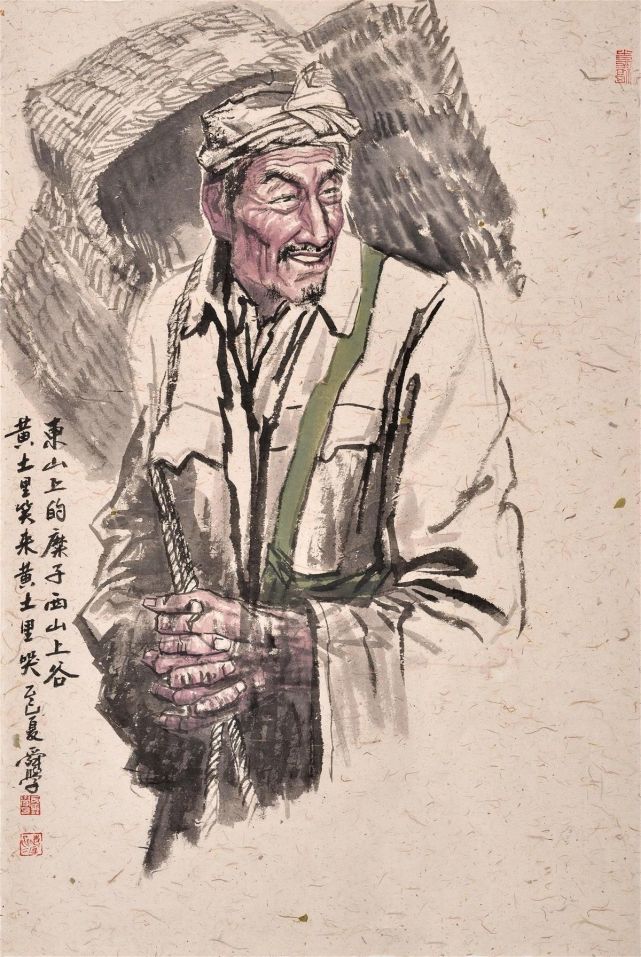 東山上的糜子西山上谷
黄土里笑来黄土里哭 乙巳夏